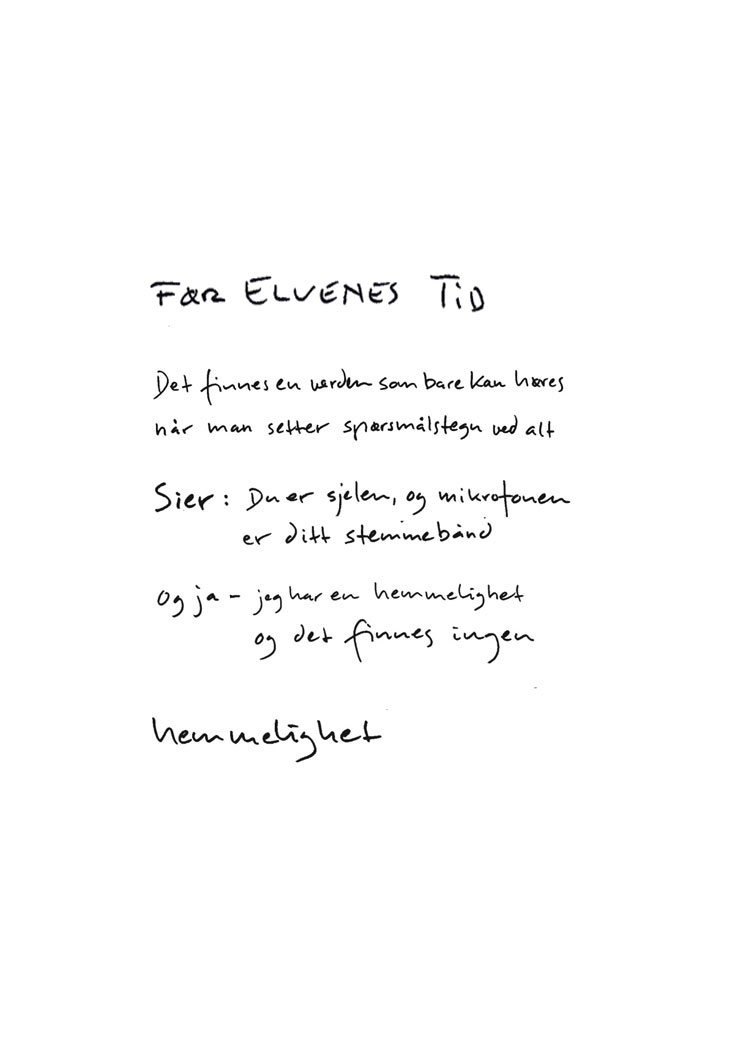 FØR ELVENES TiD
Det finnes en verden som bare kan høres
når man setter spørsmålstegn ved alt
Sier: Du er sjelen, og mikrofonen
er ditt stemmebånd
Og ja – jeg har en hemmelighet
og det finnes ingen
hemmelighet